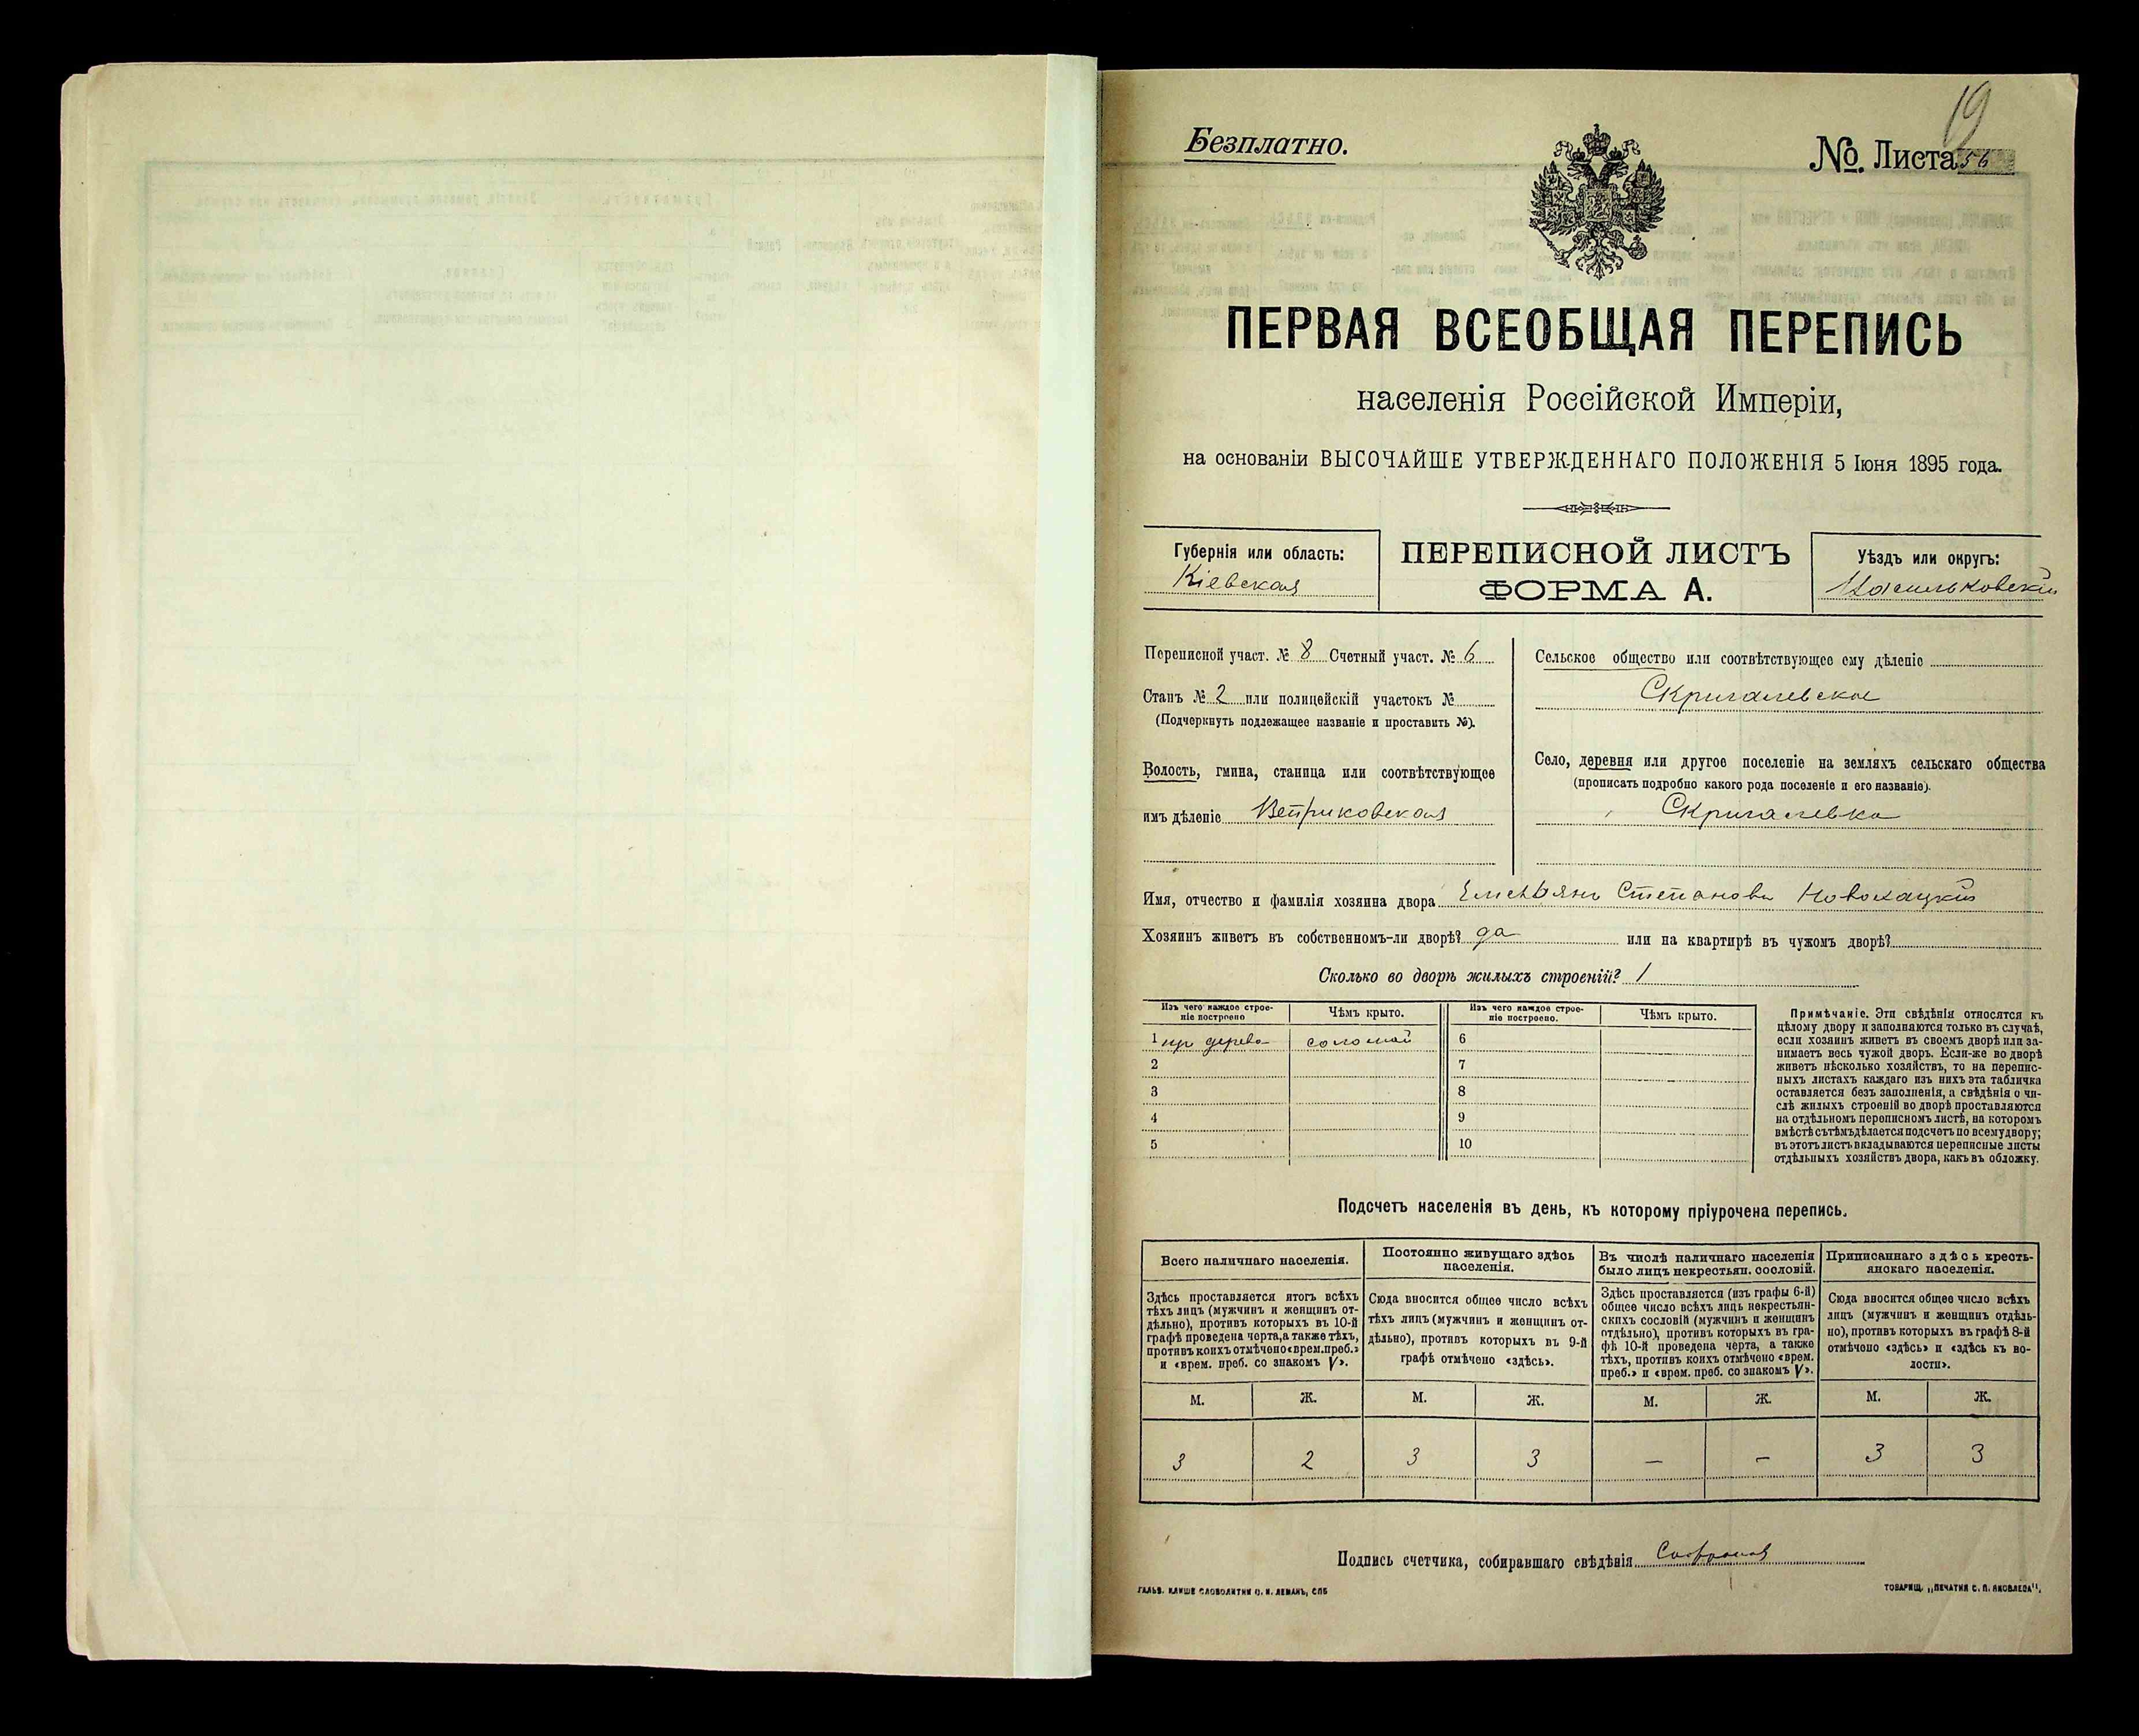 19
Безплатно.
№. Листа 56
ПЕРВАЯ ВСЕОБЩАЯ ПЕРЕПИСЬ
населенія Россійской Имперіи,
на основаніи ВЫСОЧАЙШЕ УТВЕРЖДЕННАГО ПОЛОЖЕНІЯ 5 Іюня 1895 года.
Губернія или область:
Кіевская
ПЕРЕПИСНОЙ ЛИСТЪ
ФОРМА А.
Уѣздъ или округъ:
Васильковскій
Переписной участ. № 8 Счетный участ. № 6
Станъ № 2 или полицейскій участокъ №
(Подчеркнуть подлежащее названіе и проставить №).
Волость, гмина, станица или соотвѣтствующее
имъ дѣленіе Ветриковская
Сельское общество или соотвѣтствующее ему дѣленіе
Скригалевское
Село, деревня или другое поселеніе на земляхъ сельскаго общества
(прописать подробно какого рода поселеніе и его названіе).
Скригалевка
Имя, отчество и фамилія хозяина двора Емельянъ Степановъ Новохацкій
Хозяинъ живетъ въ собственномъ-ли дворѣ? да или на квартирѣ въ чужомъ дворѣ?
Сколько во дворѣ жилыхъ строеній? 1
Изъ чего каждое строе-
ніе построено
Чѣмъ крыто.
Изъ чего каждое строе-
ніе построено.
Чѣмъ крыто.
1 дерева соломой 6
2 7
3 8
4 9
5 10
Примѣчаніе. Эти свѣдѣнія относятся къ
цѣлому двору и заполняются только въ случаѣ,
если хозяинъ живетъ въ своемъ дворѣ или за-
нимаетъ весь чужой дворъ. Если-же во дворѣ
живетъ нѣсколько хозяйствъ, то на перепис-
ныхъ листахъ каждаго изъ нихъ эта табличка
оставляется безъ заполненія, а свѣдѣнія о чи-
слѣ жилыхъ строеній во дворѣ проставляются
на отдѣльномъ переписномъ листѣ, на которомъ
вмѣстѣ съ тѣмъ дѣлается подсчетъ по всему двору;
въ этотъ листъ вкладываются переписные листы
отдѣльныхъ хозяйствъ двора, какъ въ обложку.
Подсчетъ населенія въ день, къ которому пріурочена перепись.
Всего наличнаго населенія.
Здѣсь проставляется итогъ всѣхъ
тѣхъ лицъ (мужчинъ и женщинъ от-
дѣльно), противъ которыхъ въ 10-й
графѣ проведена черта, а также тѣхъ,
противъ коихъ отмѣчено «врем. преб.»
и «врем. преб. со знакомъ V».
Постоянно живущаго здѣсь
населенія.
Сюда вносится общее число всѣхъ
тѣхъ лицъ (мужчинъ и женщинъ от-
дѣльно), противъ которыхъ въ 9-й
графѣ отмѣчено «здѣсь».
Въ числѣ наличнаго населенія
было лицъ некрестьян. сословій.
Здѣсь проставляется (изъ графы 6-й)
общее число всѣхъ лицъ некрестьян-
скихъ сословій (мужчинъ и женщинъ
отдѣльно), противъ которыхъ въ гра-
фѣ 10-й проведена черта, а также
тѣхъ, противъ коихъ отмѣчено «врем.
преб.» и «врем. преб. со знакомъ V».
Приписаннаго здѣсь кресть-
янскаго населенія.
Сюда вносится общее число всѣхъ
лицъ (мужчинъ и женщинъ отдѣль-
но), противъ которыхъ въ графѣ 8-й
отмѣчено «здѣсь» и «здѣсь къ во-
лости».
М. Ж. М. Ж. М. Ж. М. Ж.
3 2 3 3 — — 3 3
Подпись счетчика, собиравшаго свѣдѣнія Софронов
ГАЛЬВ. КЛИШЕ СЛОВОЛИТНИ О. И. ЛЕМАНЪ, СПБ
ТОВАРИЩ. „ПЕЧАТНЯ С. П. ЯКОВЛЕВА".